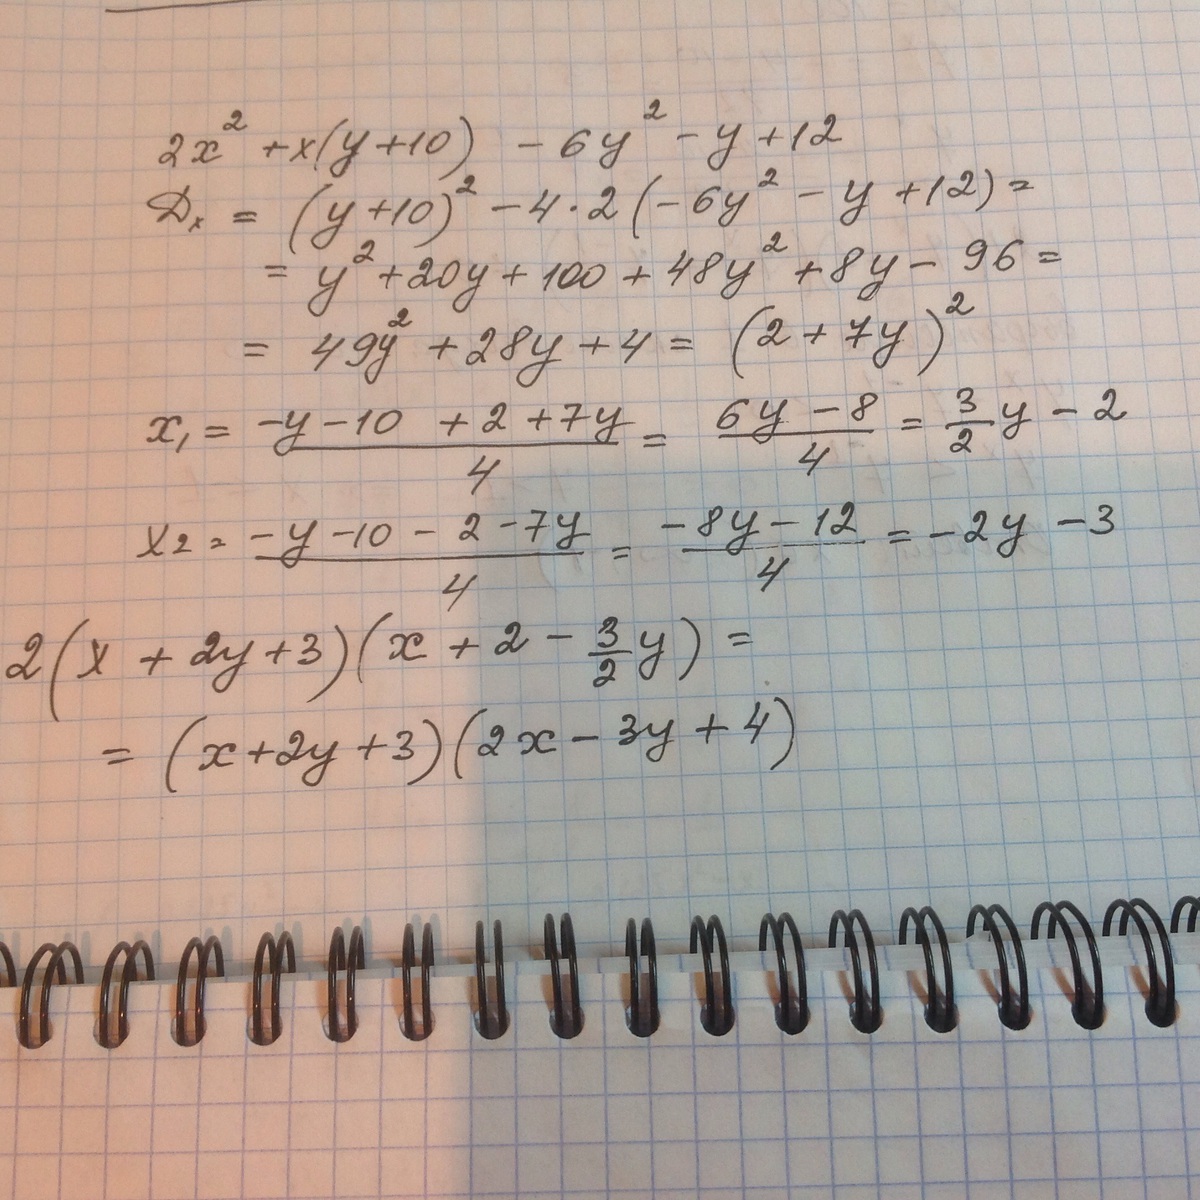 2x² + x(y+10) - 6y² - y + 12
Дₓ = (y+10)² - 4·2(-6y² - y + 12) =
= y² + 20y + 100 + 48y² + 8y - 96 =
= 49y² + 28y + 4 = (2 + 7y)²
x₁ = (-y - 10 + 2 + 7y)/4 = (6y - 8)/4 = 3/2 y - 2
x₂ = (-y - 10 - 2 - 7y)/4 = (-8y - 12)/4 = -2y - 3
2(x + 2y + 3)(x + 2 - 3/2 y) =
= (x + 2y + 3)(2x - 3y + 4)